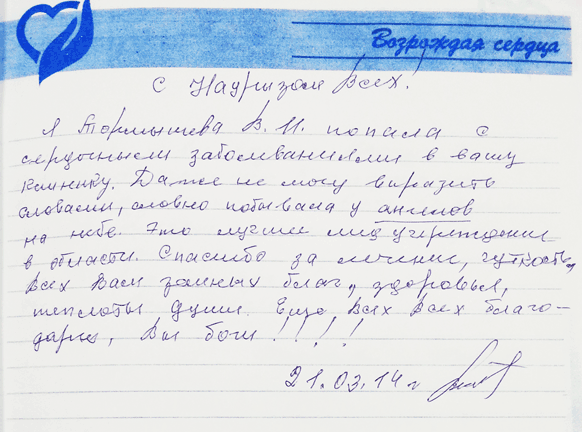 Возрождая сердца
С Наурызом Всех.
Я Тормышева В. И. попала с
сердечными заболиваниями в вашу
клинику. Даже не могу выразить
словами, словно побывала у ангелов
на небе. Это лучшее мед учреждение
в области. Спасибо за лечение, чуткость,
Всех Вам земных благ, здоровья,
теплоты души. Еще Всех Всех благо-
дарю, Вы боги !!!!
21.03.14 г